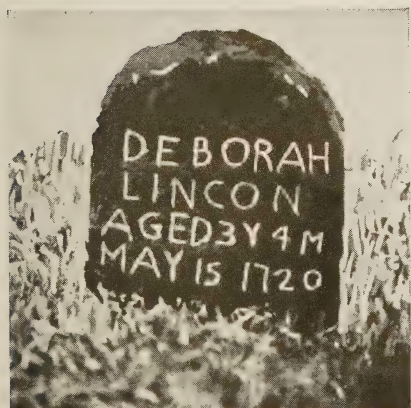 DEBORAH
LINCON
AGED 3Y 4 M
MAY 15 1720